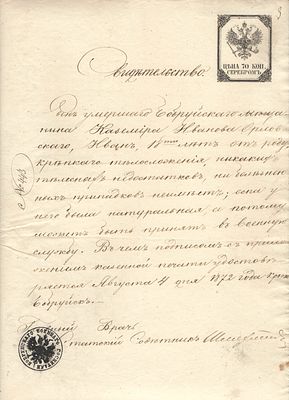 ЦѢНА 70 КОП.
СЕРЕБРОМЪ.
Свидѣтельство.
Сынъ умершаго Бобруйскаго мѣща-
нина Казиміра Иванова Орлов-
скаго, Иванъ, лѣтъ отъ роду
крѣпкаго тѣлосложенія, никакихъ
тѣлесныхъ недостатковъ, ни болѣзнен-
ныхъ припадковъ неимѣетъ, оспа у
него была натуральная, а потому
можетъ быть принятъ въ военную
службу. Въ чемъ подписомъ съ прило-
женіемъ казенной печати удостовѣ-
ряется Августа 4 дня 1872 года
Бобруйскъ.
Врачъ
Статскій Совѣтникъ